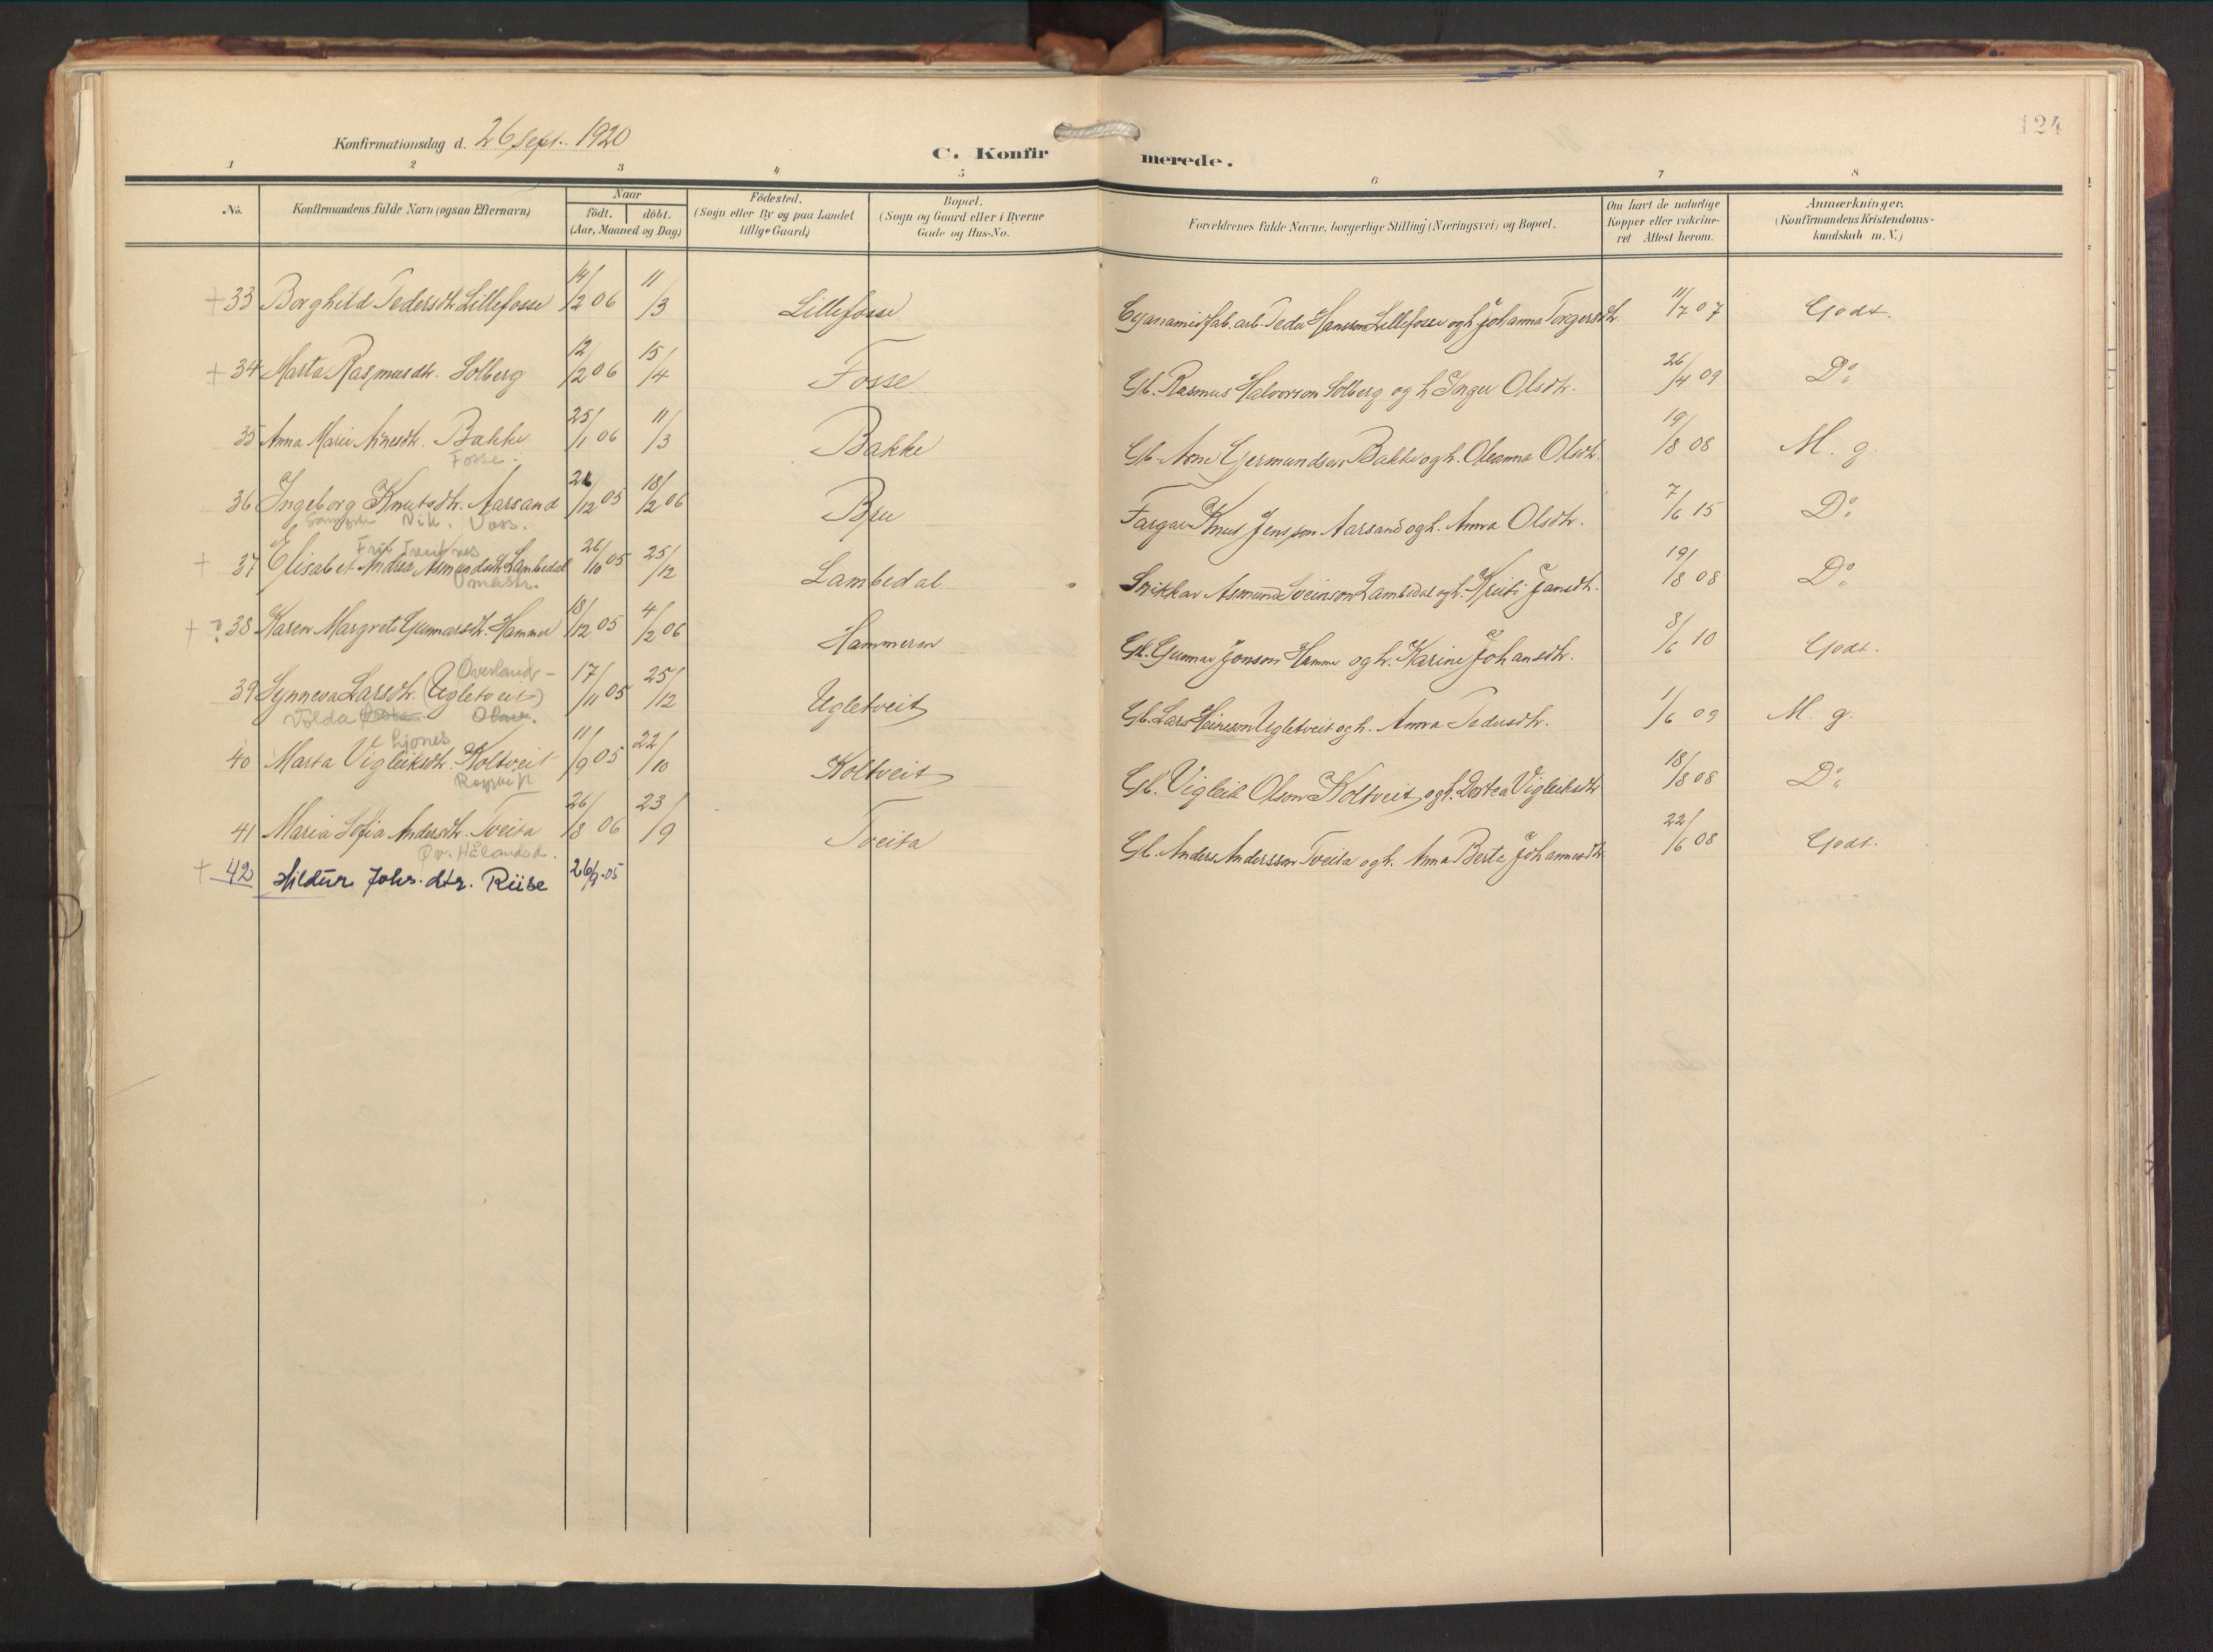 124
Konfirmationsdag d. 26 Sept. 1920
C. Konfir merede.
1 2 3 4 5 6 7 8
No. Konfirmandens fulde Navn (ogsaa Efternavn) Naar födt. döbt. (Aar, Maaned og Dag) Födested. (Sogn eller By og paa Landet tillige Gaard) Bopæl. (Sogn og Gaard eller i Byerne Gade og Hus-No. Forældrenes fulde Navne, borgerlige Stilling (Næringsvei) og Bopæl. Om havt de naturlige Kopper eller vakcineret Attest herom. Anmærkninger. (Konfirmandens Kristendomskundskab m. V.)
+ 33 Borghild Pedersdtr. Lillefosse 14/2 06 11/3 Lillefosse Cyanamidfab. arb. Peder Hansson Lillefosse og h. Johanna Torgersdtr. 11/7 07 Godt.
+ 34 Marta Rasmusdtr. Solberg 12/2 06 15/4 Fosse Gb. Rasmus Halvorson Solberg og h. Inger Olsdtr. 26/4 09 Do
35 Anna Marie Arnesdtr. Bakke 25/1 06 11/3 Bakke Gb. Arne Germundson Bakke og h. Oleanna Olsdtr. 19/8 08 M. g.
Fosse.
36 Ingeborg Knutsdtr. Aarsand 12 05 18/2 06 Bru Fargar Knut Jensson Aarsand og h. Anna Olsdtr. 7/6 15 Do
Vik. Voss.
+ 37 Elisabet Andrea Asmundsdtr. Lambedal 26/10 05 25/12 Lambedal Snikkar Asmund Sveinson Lambedal og h. Kristi Jansdtr. 19/8 08 Do
Omastr.
+ ? 38 Karen Margrete Gunnarsdtr. Hammer 18/12 05 4/2 06 Hammeren Gb. Gunnar Jonson Hamme og h. Karine Johansdtr. 8/6 10 Godt.
Øvreland
39 Synneva Larsdtr. (Ugletveit) 17/11 05 25/12 Ugletveit Gb. Lars Heineson Ugletveit og h. Anna Pedersdtr. 1/6 09 M. g.
40 Marta Vigleiksdtr. Koltveit 11/9 05 22/10 Koltveit Gb. Vigleik Olson Koltveit og h. Dortea Vigleiksdtr. 18/8 08 Do
41 Maria Sofia Andersdtr. Tveita 26/8 06 23/9 Tveita Gb. Anders Andersson Tveita og h. Anna Berta Johannesdtr. 22/6 08 Godt.
Øv. Hålandsd.
+ 42 Hildur Johs. dtr. Riise 26/9-05